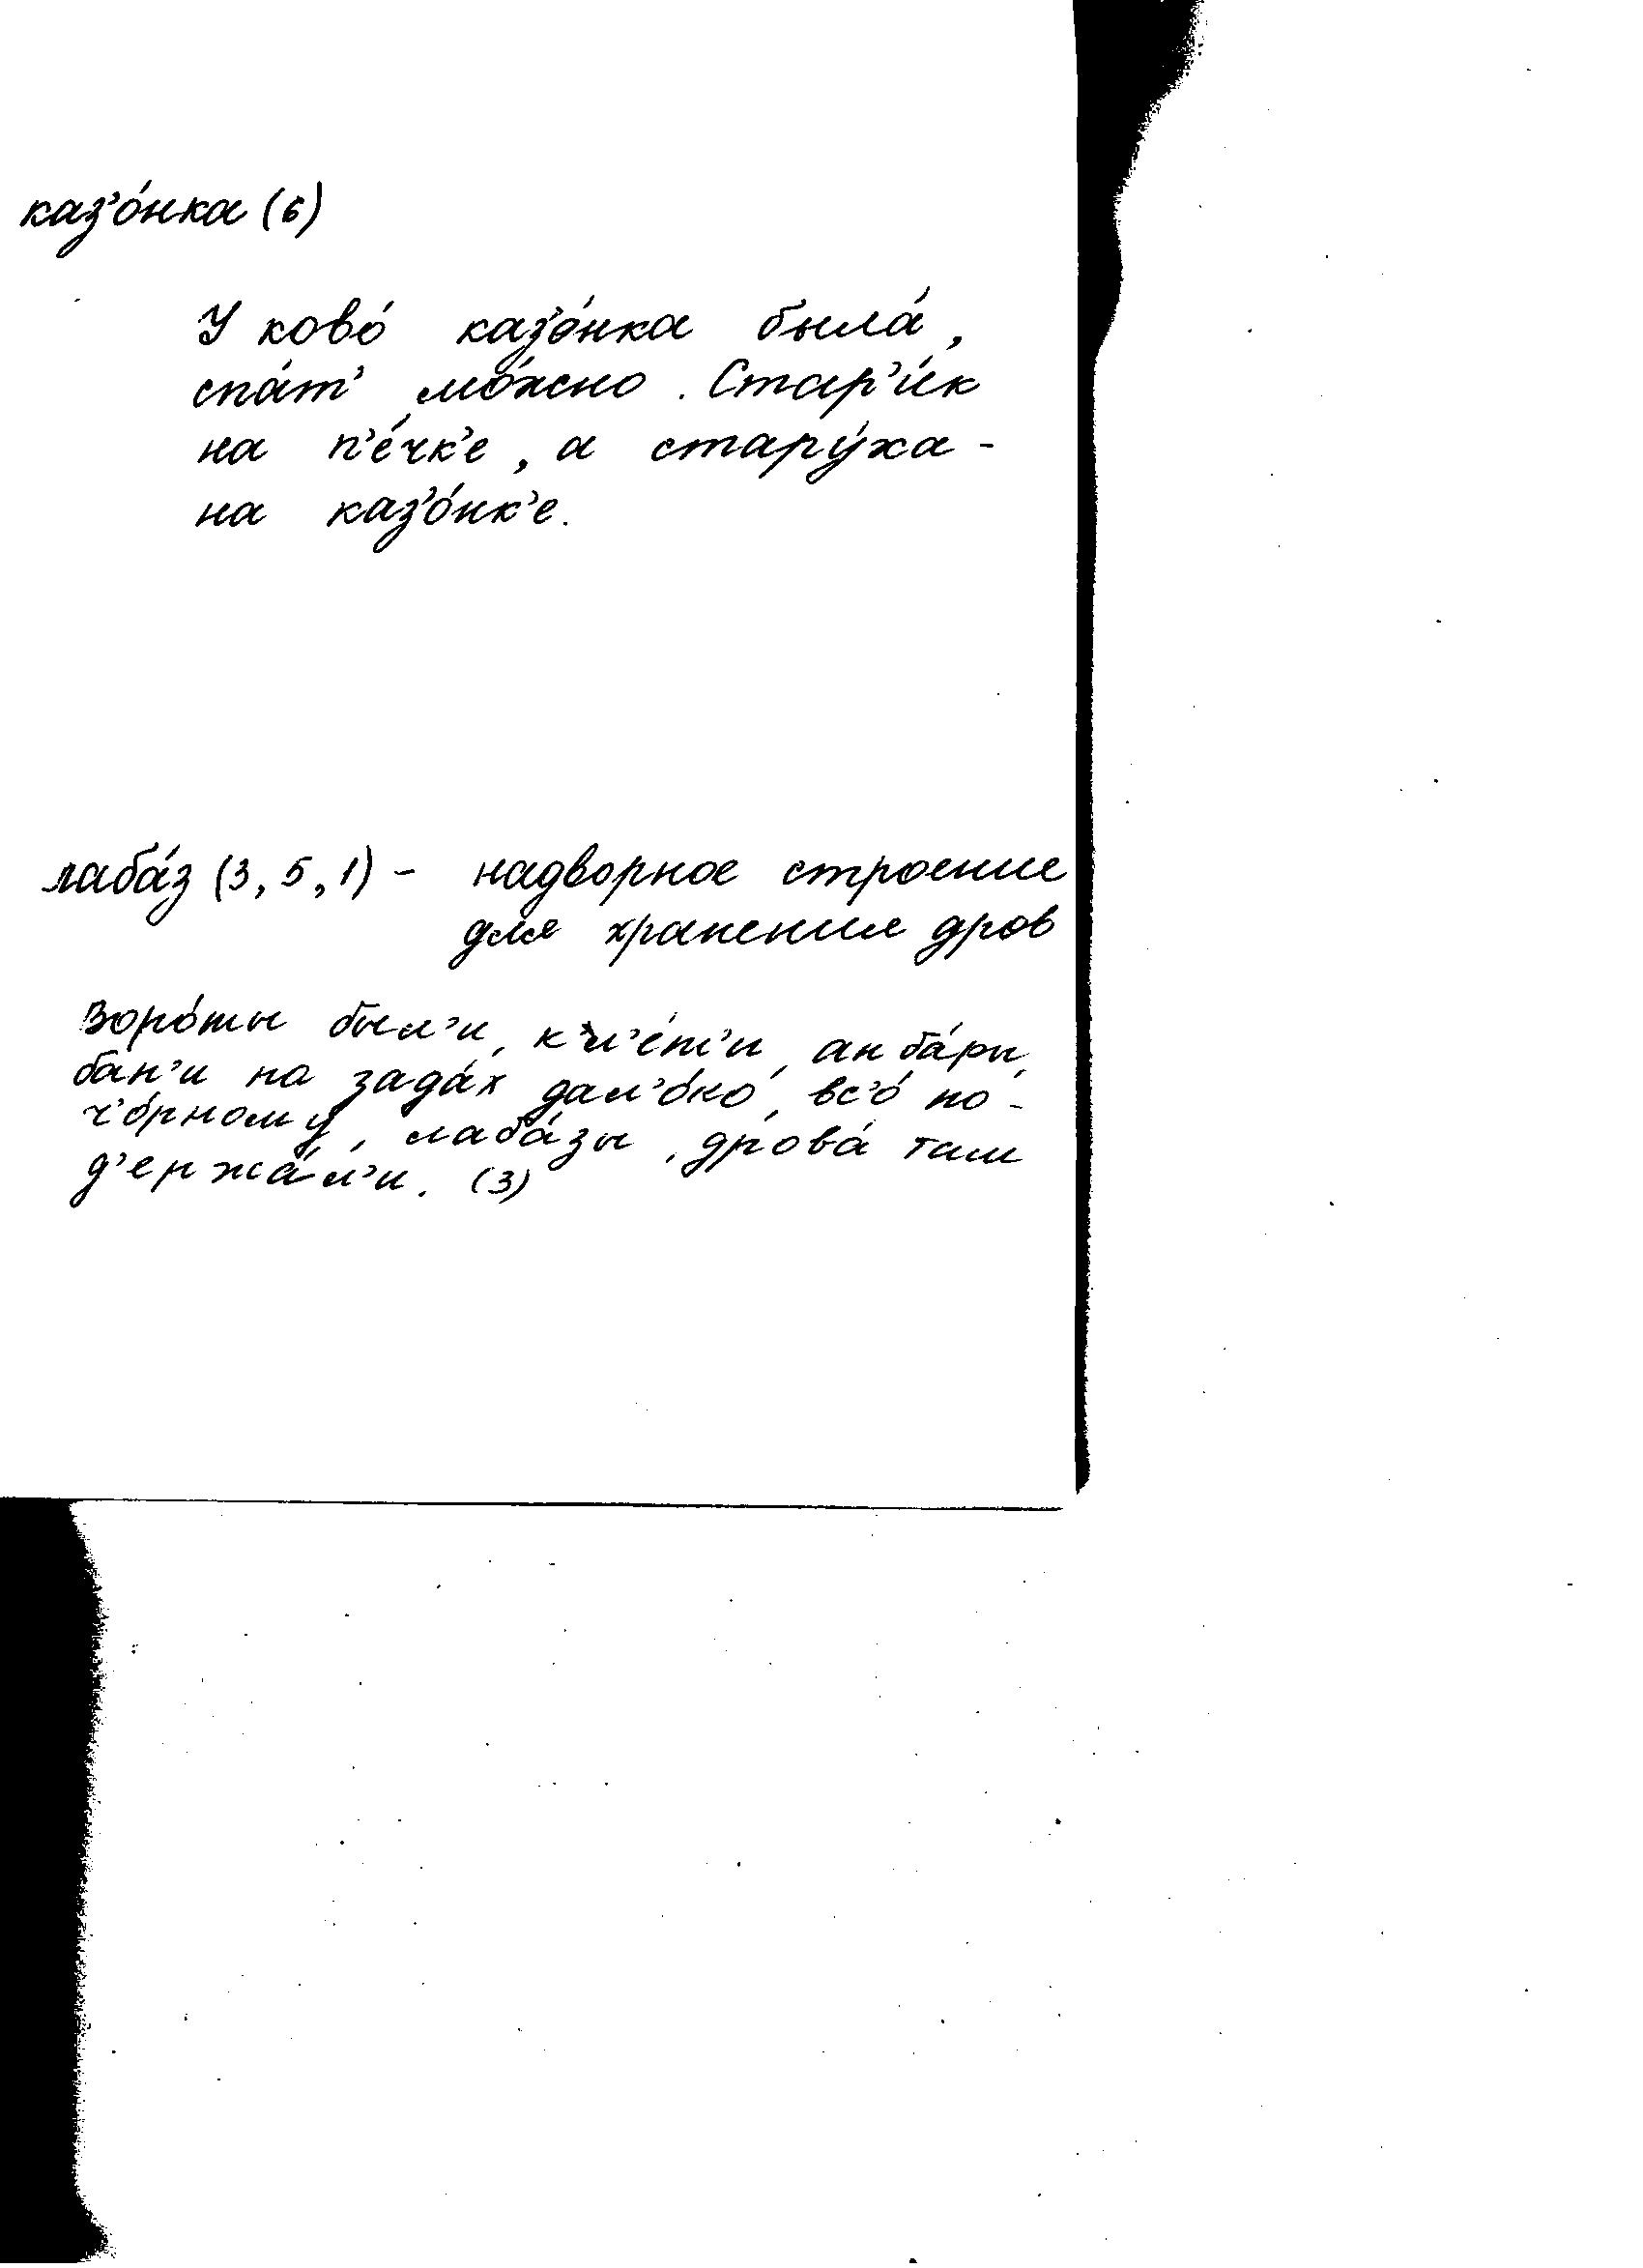 каз'о́нка (6)
У ково́ каз'о́нка была́,
спа́т' мо́жно. Стар'и́к
на п'е́чк'е, а стару́ха -
на каз'о́нк'е.
лаба́з (3, 5, 1) - надворное строение
для хранения дров
Воро́ты был'и, кл'е́т'и, анба́ры,
ба́н'и на зада́х дал'о́ко, вс'о́ по-
ч'о́рному, лаба́зы, дрова́ там
д'ержа́л'и. (3)